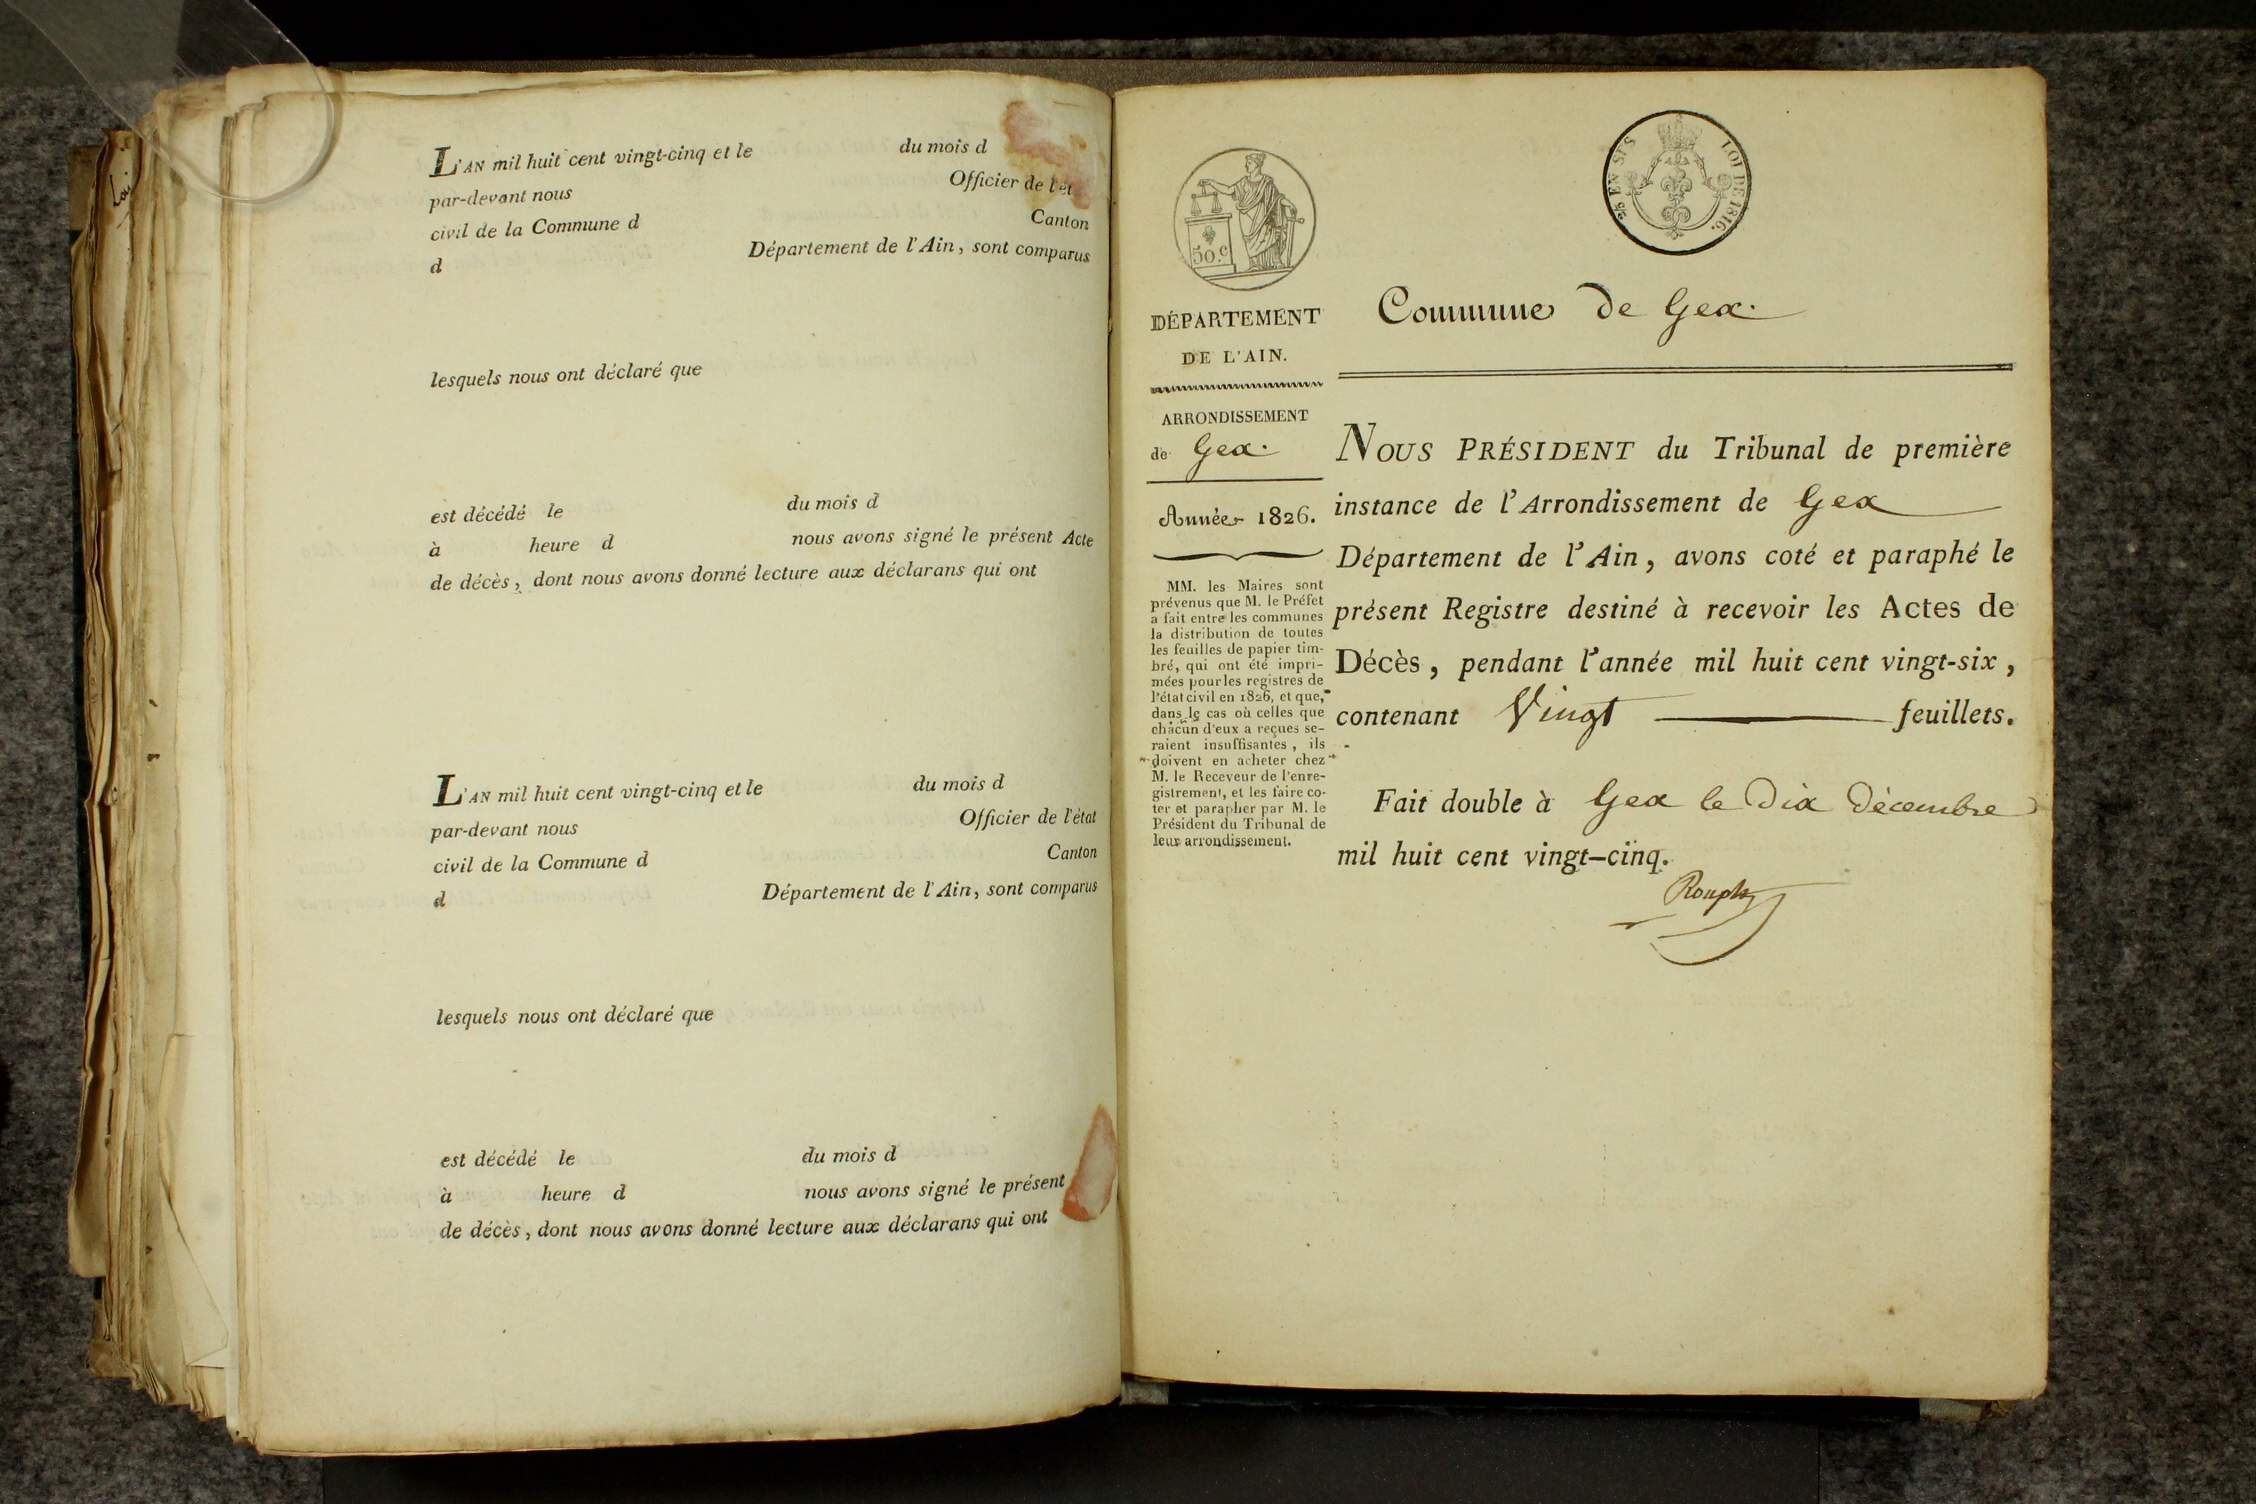 Loi
L'AN mil huit cent vingt-cinq et le du mois d
par-devant nous Officier de l'ét
civil de la Commune d Canton
d Département de l'Ain, sont comparus
lesquels nous ont déclaré que
est décédé le du mois d
à heure d nous avons signé le présent Acte
de décès, dont nous avons donné lecture aux déclarans qui ont
L'AN mil huit cent vingt-cinq et le du mois d
par-devant nous Officier de l'état
civil de la Commune d Canton
d Département de l'Ain, sont comparus
lesquels nous ont déclaré que
est décédé le du mois d
à heure d nous avons signé le présent
de décès, dont nous avons donné lecture aux déclarans qui ont
50.c
EN SUS
LOI DE 1816.
DÉPARTEMENT
DE L'AIN.
ARRONDISSEMENT
de Gex.
Année 1826.
MM. les Maires sont
prévenus que M. le Préfet
a fait entre les communes
la distribution de toutes
les feuilles de papier tim-
bré, qui ont été impri-
mées pour les registres de
l'état civil en 1826, et que,
dans le cas où celles que
chacun d'eux a reçues se-
raient insuffisantes, ils
doivent en acheter chez
M. le Receveur de l'enre-
gistrement, et les faire co-
ter et parapher par M. le
Président du Tribunal de
leur arrondissement.
Commune de Gex.
NOUS PRÉSIDENT du Tribunal de première
instance de l'Arrondissement de Gex
Département de l'Ain, avons coté et paraphé le
présent Registre destiné à recevoir les Actes de
Décès, pendant l'année mil huit cent vingt-six,
contenant Vingt feuillets.
Fait double à Gex le Dix Décembre
mil huit cent vingt-cinq.